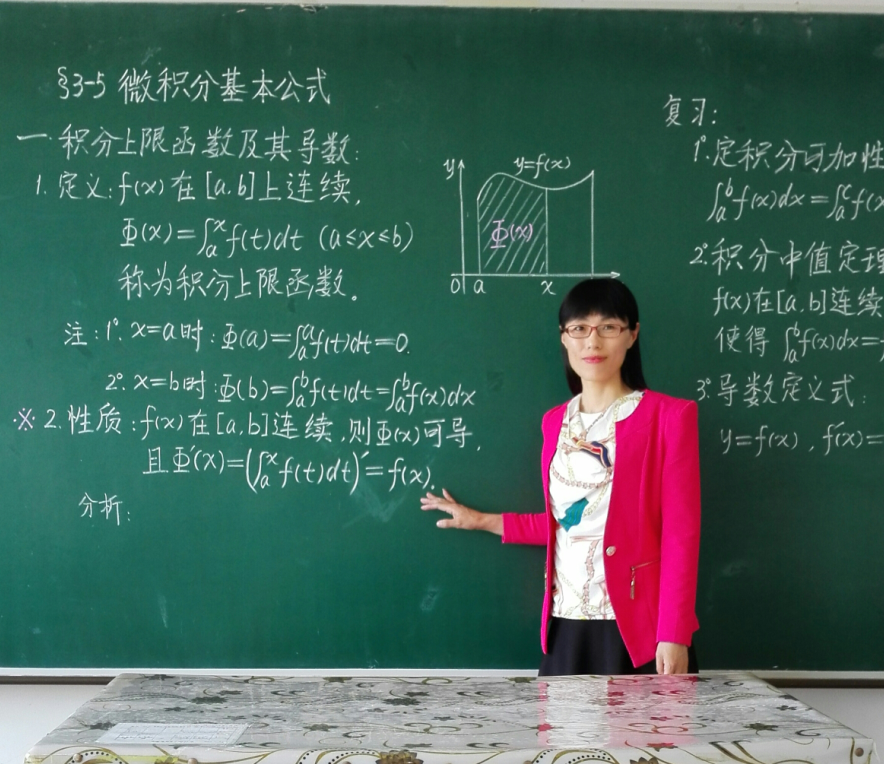 §3-5 微积分基本公式
一.积分上限函数及其导数:
1.定义:f(x)在[a.b]上连续,
Φ(x)=∫ₐˣf(t)dt (a≤x≤b)
称为积分上限函数。
注:1°. x=a时:Φ(a)=∫ₐᵃf(t)dt=0.
2°. x=b时:Φ(b)=∫ₐᵇf(t)dt=∫ₐᵇf(x)dx
※2.性质:f(x)在[a,b]连续,则Φ(x)可导,
且Φ′(x)=(∫ₐˣf(t)dt)′=f(x).
分析:
y
y=f(x)
Φ(x)
0 a x
复习:
1°.定积分可加性
∫ₐᵇf(x)dx=∫ₐᶜf(x
2°.积分中值定理
f(x)在[a,b]连续
使得 ∫ₐᵇf(x)dx=
3°.导数定义式:
y=f(x),f′=